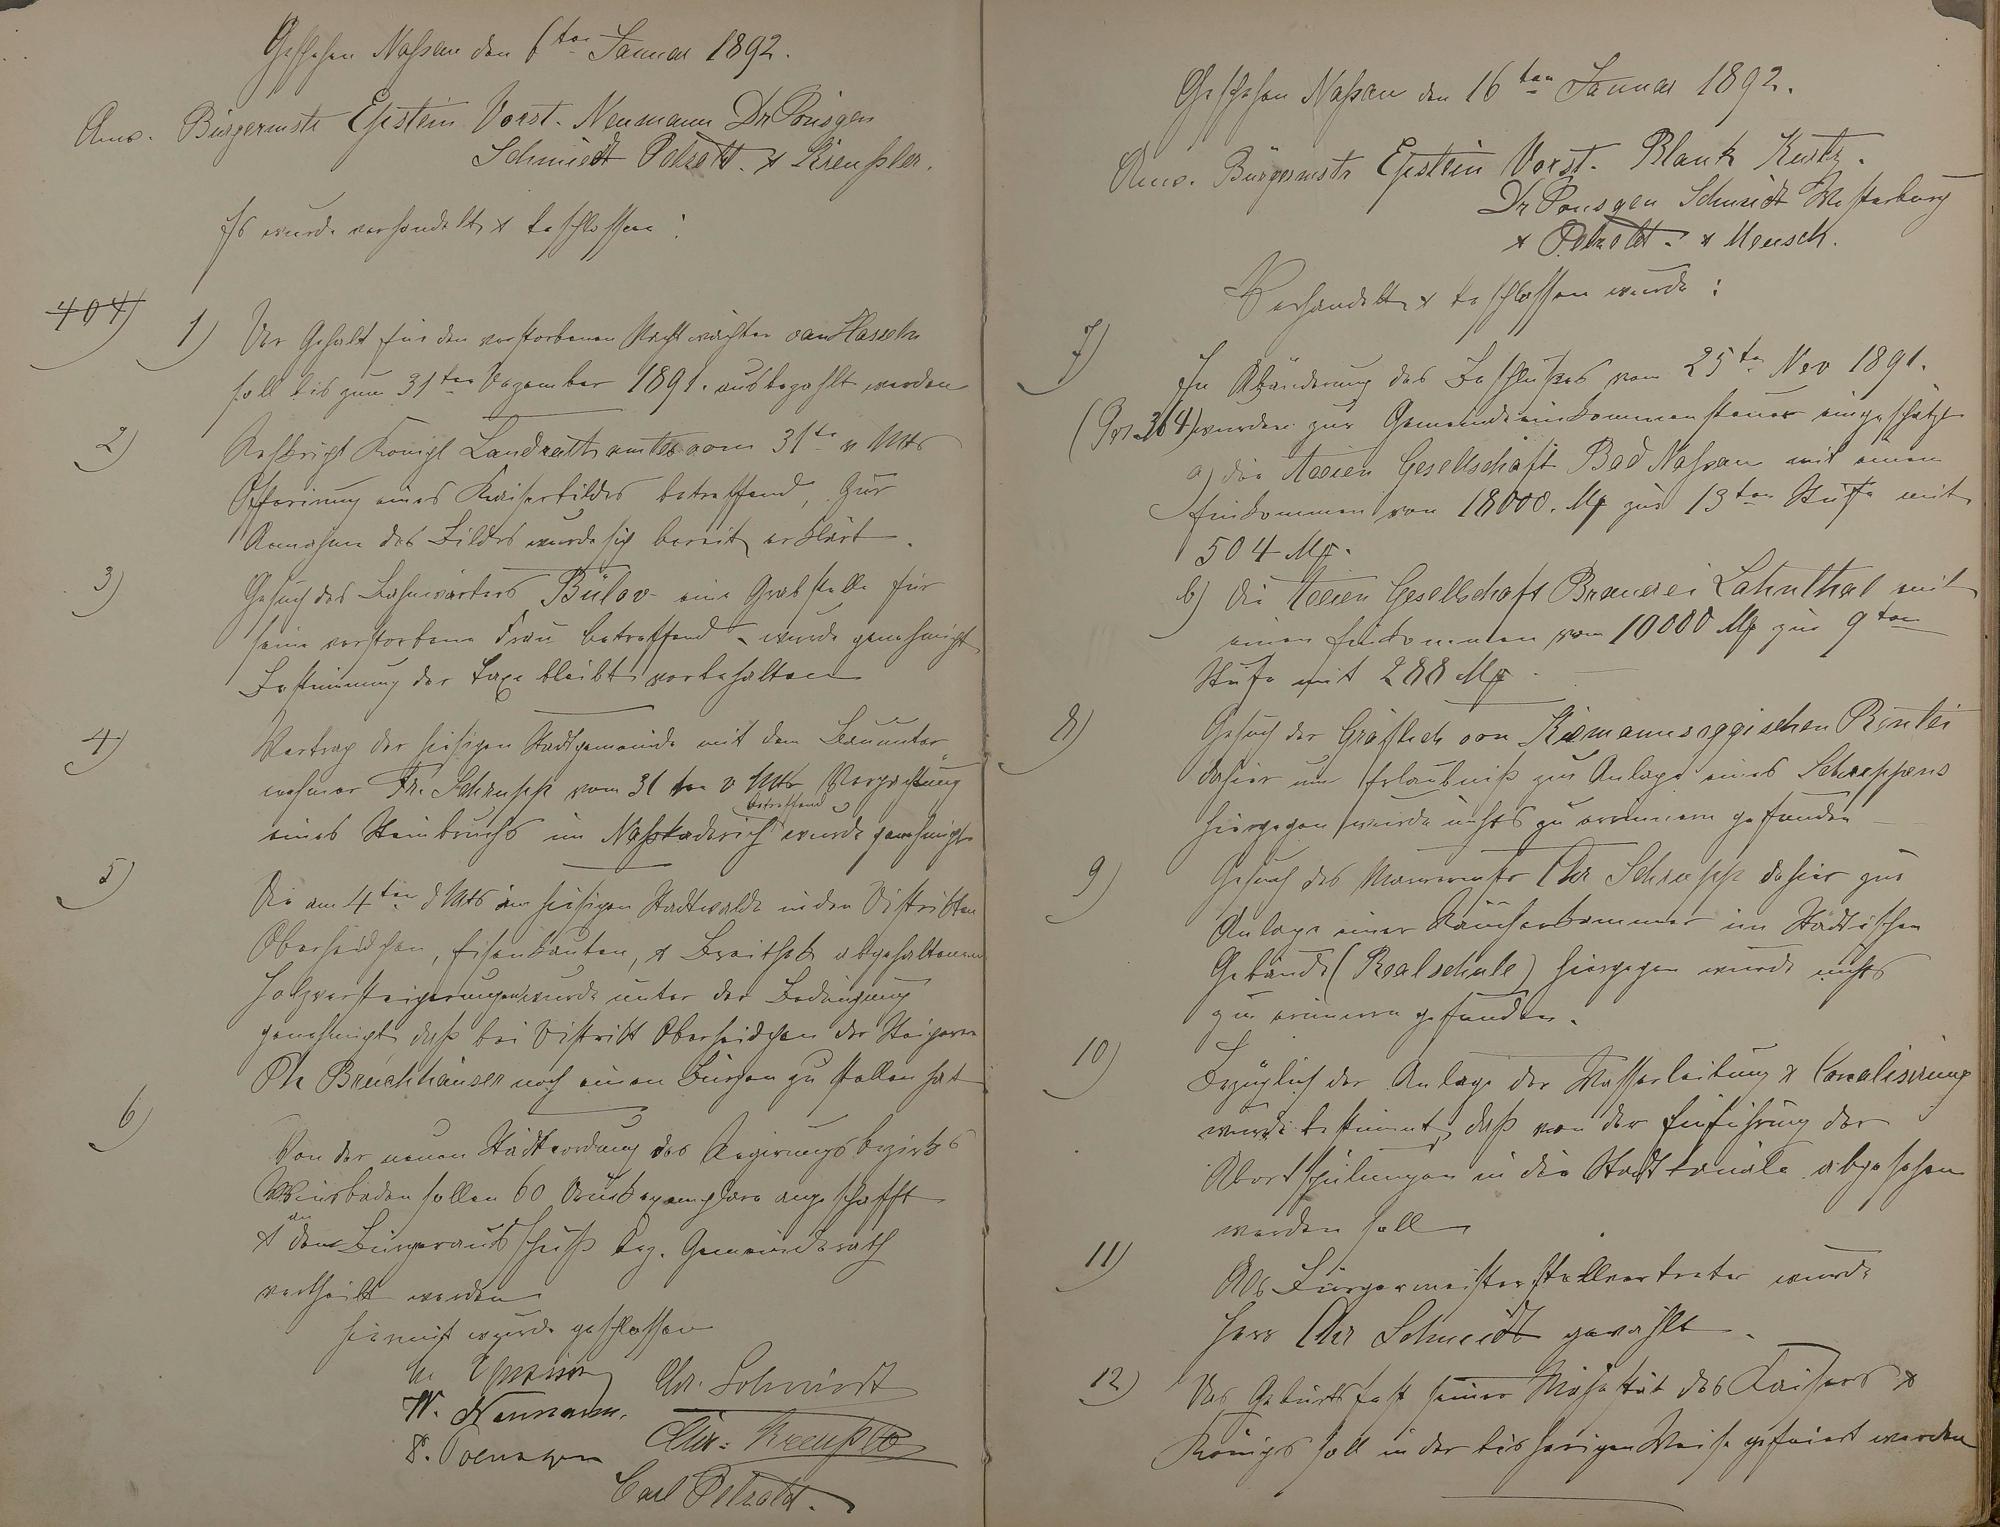 Geschehen Nassau den 6ten Januar 1892.
Anw. Bürgermstr Epstein Vorst. Neumann Dr Pönsgen
Schmidt Petzold. & Kreußler.
Es wurde verhandelt & beschlossen:
404) 1) Der Gehalt für den verstorbenen Nachtwächter van Hasseln
soll bis zum 31ten Dezember 1891. ausbezahlt werden
2) Rescript Königl Landrathsamtes vom 31ten v Mts
Offerirung eines Kaiserbildes betreffend, Zur
Annahme des Bildes wurde sich bereit erklärt.
3) Gesuch des Bahnwärters Bülov eine Grabstelle für
seine verstorbene Frau betreffend, wurde genehmigt
Bestimmung der Taxe bleibt vorbehalten
4) Vertrag der hiesigen Stadtgemeinde mit dem Bauunter-
nehmer Fr. Schrupp vom 31ten v Mts Verpachtung
betreffend
eines Steinbruchs im wurde genehmigt
5) Die am 4ten d Mts im hiesigen Stadtwalde in den Distrikten
Oberheidchen, Eisenkauten, & Breitheck abgehaltenen
Holzversteigerungen wurde unter der Bedingung
genehmigt, daß bei Distrikt Oberheidchen der Steigerer
Ph Bruchhäuser noch einen Bürgen zu stellen hat
6) Von der neuen Städteordnung des Regierungsbezirks
Wiesbaden sollen 60 Druckexemplare angeschafft
an
& den Bürgerausschuß bez. Gemeinderath
vertheilt werden
Hiermit wurde geschlossen
Chr. Schmidt
W. Neumann.
Chr. Kreußler
P. Poensgen
Carl Petzold.
Geschehen Nassau den 16ten Januar 1892.
Anw. Bürgermstr Epstein Vorst. Blank Kurtz.
Dr Ponsgen Schmidt Westerburg
& Petzold. & Mensch.
Verhandelt & beschlossen wurde:
7) In Abänderung des Beschlusses vom 25ten Nov 1891.
(Pos. 364) wurden zur Gemeindeeinkommensteuer eingeschätzt
a) die Actien Gesellschaft Bad Nassau mit einem
Einkommen von 18000. M zur 13ten Stufe mit
504 M.
b) Die Actien Gesellschaft Brauerei Lahnthal mit
einem Einkommen von 10000 M zur 9ten
Stufe mit 288 M.
8) Gesuch der Gräflich von Kiemannseggischen Rentei
dahier um Erlaubniß zur Anlage eines Schuppens
hiergegen wurde nichts zu erinnern gefunden
9) Gesuch des Maurermstr Chr Schrupp dahier zur
Anlage einer Räucherkammer im Städtischen
Gebäude (Realschule) hiergegen wurde nichts
zu erinnern gefunden.
10) Bezüglich der Anlage der Wasserleitung & Canalisirung
wurde bestimmt, daß von der Einführung der
Abortspülungen in die Stadtkanäle abgesehen
werden soll
11) Als Bürgermeisterstellvertreter wurde
Herr Chr Schmidt gewählt.
12) Das Geburtsfest seiner Majestät des Kaisers &
Königs soll in der bisherigen Weise gefeiert werden